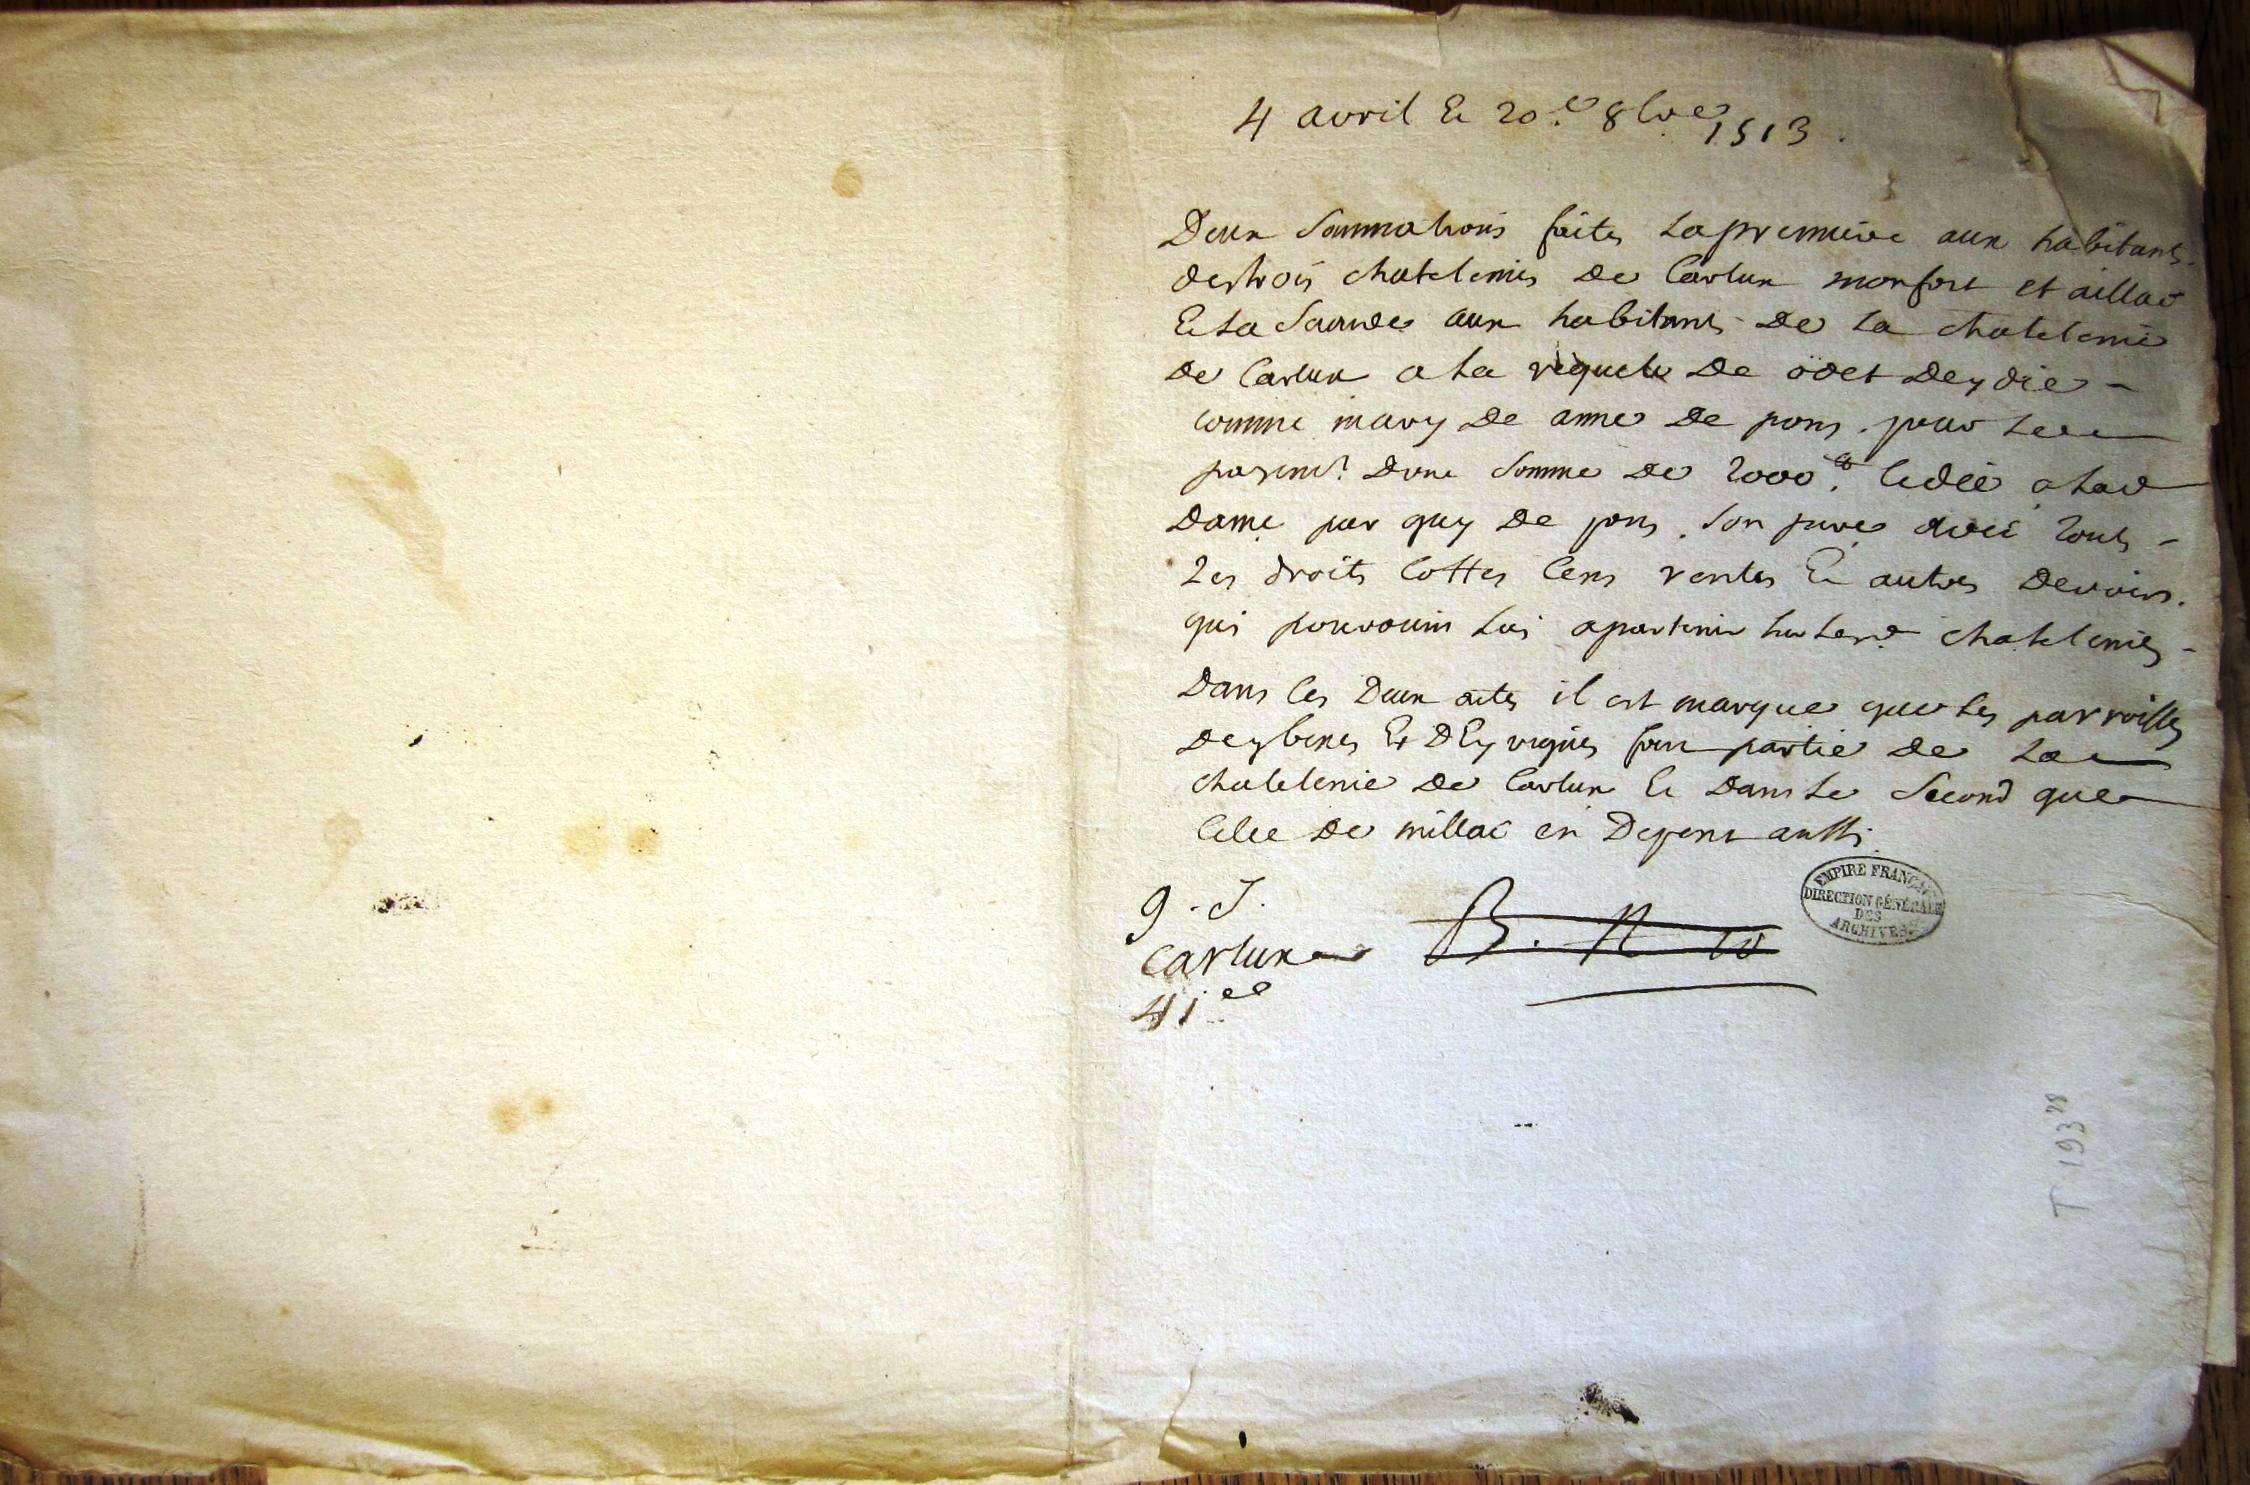 4 avril Et 20.e 8bre 1513.
Deux Sommations faites La premiere aux habitants
des trois chatelenies de Carlux monfort et aillac
Et La Seconde aux habitants de La chatelenie
de Carlux a La requete de odet Deydie
comme mary de anne de pons. pour Le
payemt. Dune Somme de 2000 lt. Cedée a Lad
Dame par guy de pons. Son pere avec touts
Les droits Cottes Cens rentes Et autres devoirs.
qui pouvoient Lui apartenir sur Lesd. chatelenies
Dans Ces Deux actes il est marque que Les parroisses
Deybenes Et DEyvigues font partie de La
chatelenie de Carlux Et Dans Le Second que
Celle de millac en Depent aussi.
9. J.
Carlux
41ee
B. N 10
EMPIRE FRANÇAIS
DIRECTION GÉNÉRALE
DES
ARCHIVES
T 193 28